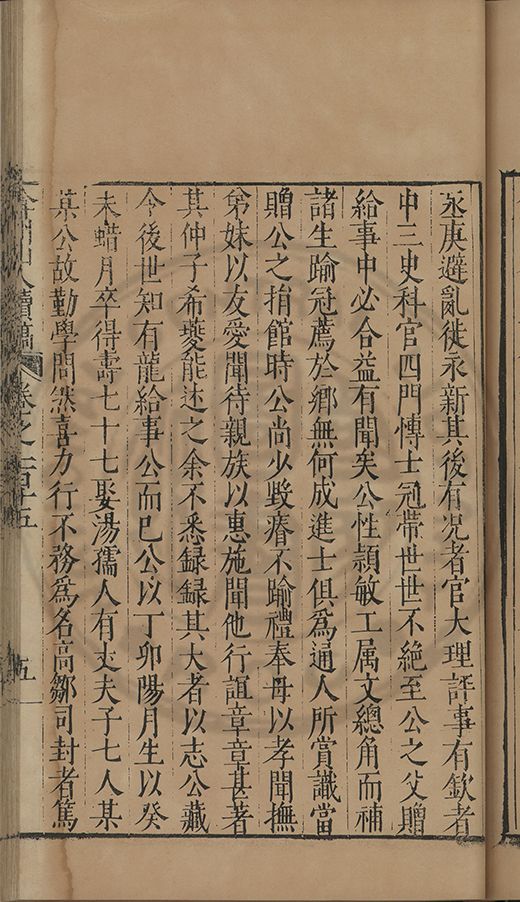 丞庚避亂徙永新其後有况者官大理評事有欽者
中三史科官四門博士冠帶世世不絕至公之父贈
給事中必合益有聞矣公性頴敏工属文總角而補
諸生踰冠薦於鄉無何成進士俱爲通人所賞識當
贈公之捐館時公尚少毀瘠不踰禮奉母以孝聞撫
弟妹以友愛聞待親族以惠施聞他行誼章章甚著
其仲子希夔能述之余不悉録録其大者以志公藏
令後世知有龍給事公而已公以丁卯陽月生以癸
未蜡月卒得壽七十七娶湯孺人有丈夫子七人某
某公故勤學問然喜力行不務爲名高鄒司封者篤
人續稿 卷之一百十五 五